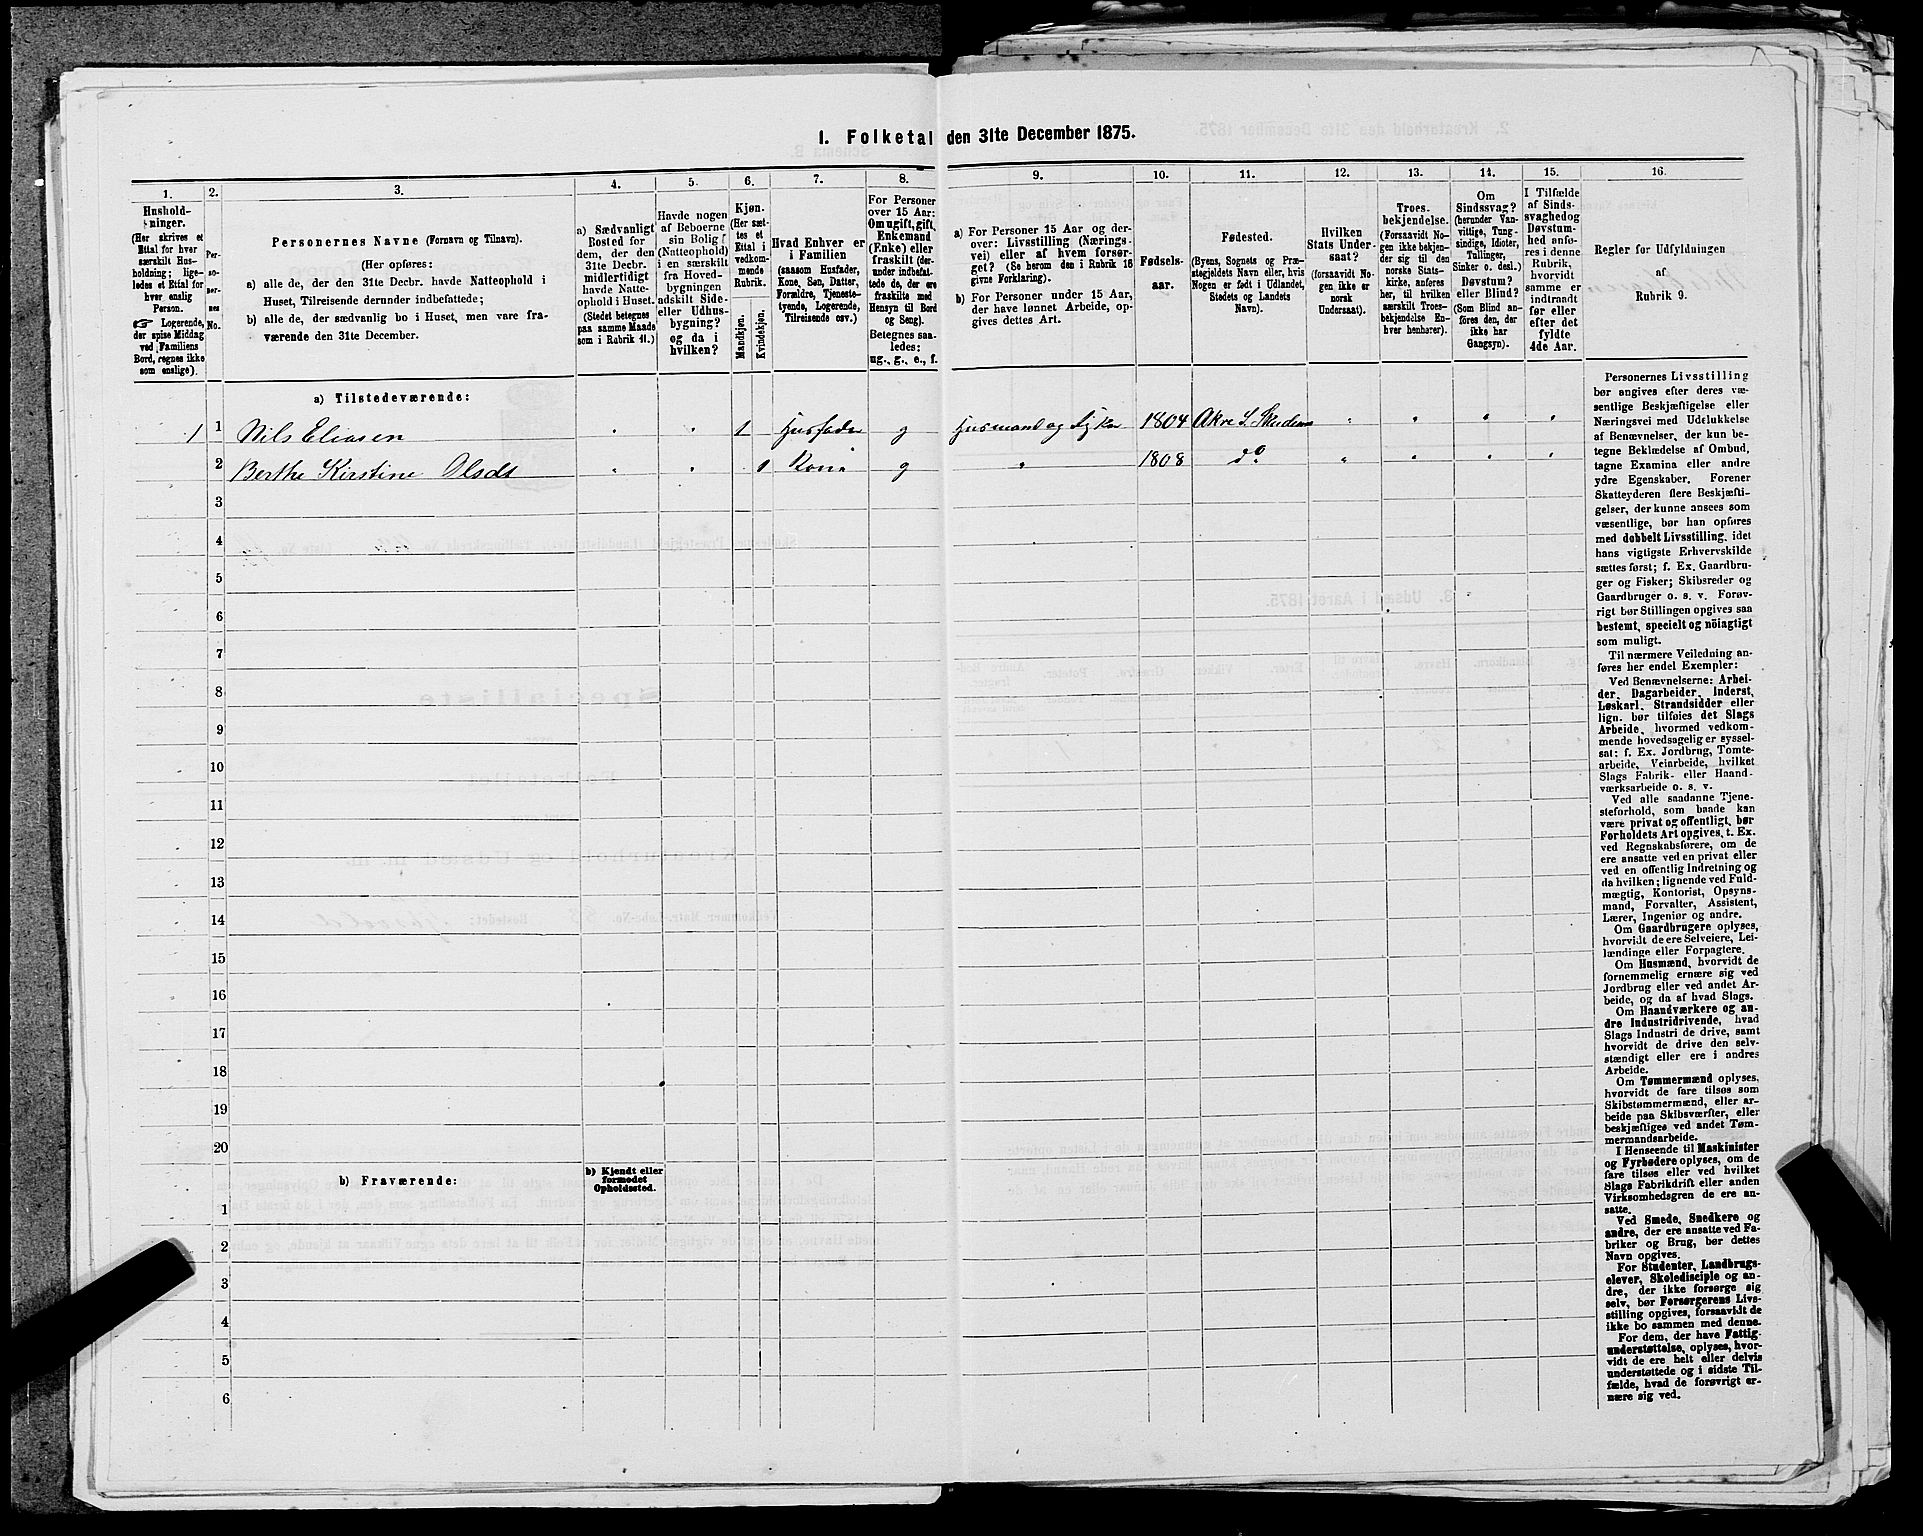 1. Folketal den 31te December 1875.
1.
2.
3.
4.
5.
6.
7.
8.
9.
10.
11.
12.
13.
14.
15.
16.
Hushold-
ninger.
(Her skrives et
Ettal for hver
særskilt Hus-
holdning; lige-
ledes et Ettal for
hver enslig
Person.
☞ Logerende,
der spise Middag
ved Familiens
Bord, regnes ikke
som enslige).
Per-
so-
ner-
nes
No.
Personernes Navne (Fornavn og Tilnavn).
(Her opføres:
a) alle de, der den 31te Decbr. havde Natteophold i
Huset, Tilreisende derunder indbefattede;
b) alle de, der sædvanlig bo i Huset, men vare fra-
værende den 31te December.
a) Sædvanligt
Bosted for
dem, der den
31te Decbr.
midlertidigt
havde Natte-
ophold i Huset.
(Stedet betegnes
paa samme Maade
som i Rubrik 11.)
Havde nogen
af Beboerne
sin Bolig
(Natteophold)
i en særskilt
fra Hoved-
bygningen
adskilt Side-
eller Udhus-
bygning?
og da i
hvilken?
Kjøn.
(Her sæt-
tes et
Ettal i
vedkom-
mende
Rubrik.
Mandkjøn.
Kvindekjøn.
Hvad Enhver er
i Familien
(saasom Husfader,
Kone, Søn, Datter,
Forældre, Tjeneste-
tyende, Logerende,
Tilreisende osv.)
For Personer
over 15 Aar:
Om ugift, gift,
Enkemand
(Enke) eller
fraskilt (der-
under indbefat-
tede de, der ere
fraskilte med
Hensyn til Bord
og Seng).
Betegnes saa-
ledes:
ug., g., e., f.
a) For Personer 15 Aar og der-
over: Livsstilling (Nærings-
vei) eller af hvem forsør-
get? (Se herom den i Rubrik 16
givne Forklaring).
b) For Personer under 15 Aar,
der have lønnet Arbeide, op-
gives dettes Art.
Fødsels-
aar.
Fødested.
(Byens, Sognets og Præ-
stegjeldets Navn eller, hvis
Nogen er født i Udlandet,
Stedets og Landets
Navn).
Hvilken
Stats Under-
saat?
(forsaavidt No-
gen ikke er
norsk
Undersaat).
Troes-
bekjendelse.
(Forsaavidt No-
gen ikke bekjen-
der sig til den
norske Stats-
kirke, anføres
her, til hvilken
særskilt Troes-
bekjendelse En-
hver henhører).
Om
Sindssvag?
(herunder Van-
vittige, Tung-
sindige, Idioter,
Tullinger,
Sinker o. desl.)
Døvstum?
eller Blind?
(Som Blind an-
føres den, der
ikke har
Gangsyn).
I Tilfælde
af Sinds-
svaghed og
Døvstum-
hed anfø-
res i denne
Rubrik,
hvorvidt
samme er
indtraadt
før eller
efter det
fyldte
4de Aar.
Regler for Udfyldningen
af
Rubrik 9.
a) Tilstedeværende:
1 1 Nils Eliasen " " 1 Husfader g Husmand og 1804 Akre S. " " " "
2 Berthe Kirstine Olsdt " " 1 Kone g " 1808 do " " " "
3
4
5
6
7
8
9
10
11
12
13
14
15
16
17
18
19
20
b) Fraværende:
b) Kjendt eller
formodet
Opholdssted.
1
2
3
4
5
6
Personernes Livsstilling
bør angives efter deres væ-
sentlige Beskjæftigelse eller
Næringsvei med Udelukkelse
af Benævnelser, der kun be-
tegne Beklædelse af Ombud,
tagne Examina eller andre
ydre Egenskaber. Forener
Skatteyderen flere Beskjæfti-
gelser, der kunne ansees som
væsentlige, bør han opføres
med dobbelt Livsstilling, idet
hans vigtigste Erhvervskilde
sættes først; f. Ex. Gaardbru-
ger og Fisker; Skibsreder og
Gaardbruger o. s. v. Forøv-
rigt bør Stillingen opgives saa
bestemt, specielt og nöiagtigt
som muligt.
Til nærmere Veiledning an-
føres her endel Exempler:
Ved Benævnelserne: Arbei-
der, Dagarbeider, Inderst,
Løskarl, Strandsidder eller
lign. bør tilføies det Slags
Arbeide, hvormed vedkom-
mende hovedsagelig er syssel-
sat: f. Ex. Jordbrug, Tomte-
arbeide, Veiarbeide, hvilket
Slags Fabrik- eller Haand-
værksarbeide o. s. v.
Ved alle saadanne Tjene-
steforhold, som baade kan
være privat og offentligt, bør
Forholdets Art opgives, t. Ex.
ved Regnskabsførere, om de
ere ansatte ved en privat eller
ved en offentlig Indretning og
da hvilken; lignende ved Fuld-
mægtig, Kontorist, Opsyns-
mand, Forvalter, Assistent,
Lærer, Ingeniør og andre.
Om Gaardbrugere oplyses,
hvorvidt de ere Selveiere, Lei-
lændinge eller Forpagtere.
Om Husmænd, hvorvidt de
fornemmelig ernære sig ved
Jordbrug eller ved andet Ar-
beide, og da af hvad Slags.
Om Haandværkere og an-
dre Industridrivende, hvad
Slags Industri de drive, samt
hvorvidt de drive den selv-
stændigt eller ere i andres
Arbeide.
Om Tømmermænd oplyses,
hvorvidt de fare tilsøs som
Skibstømmermænd, eller ar-
beide paa Skibsværfter, eller
beskjæftiges ved andet Tøm-
mermandsarbeide.
I Henseende til Maskinister
og Fyrbødere oplyses, om de
fare tilsøs eller ved hvilket
Slags Fabrikdrift eller anden
Virksomhedsgren de ere an-
satte.
Ved Smede, Snedkere og
andre, der ere ansatte ved Fa-
briker og Brug, bør dettes
Navn opgives.
For Studenter, Landbrugs-
elever, Skoledisciple og an-
dre, der ikke forsørge sig
selv, bør Forsørgerens Livs-
stilling opgives, forsaavidt de
ikke bo sammen med denne.
For dem, der have Fattig-
understøttelse, oplyses, hvor-
vidt de ere helt eller delvis
understøttede og i sidste Til-
fælde, hvad de forøvrigt er-
nære sig ved.